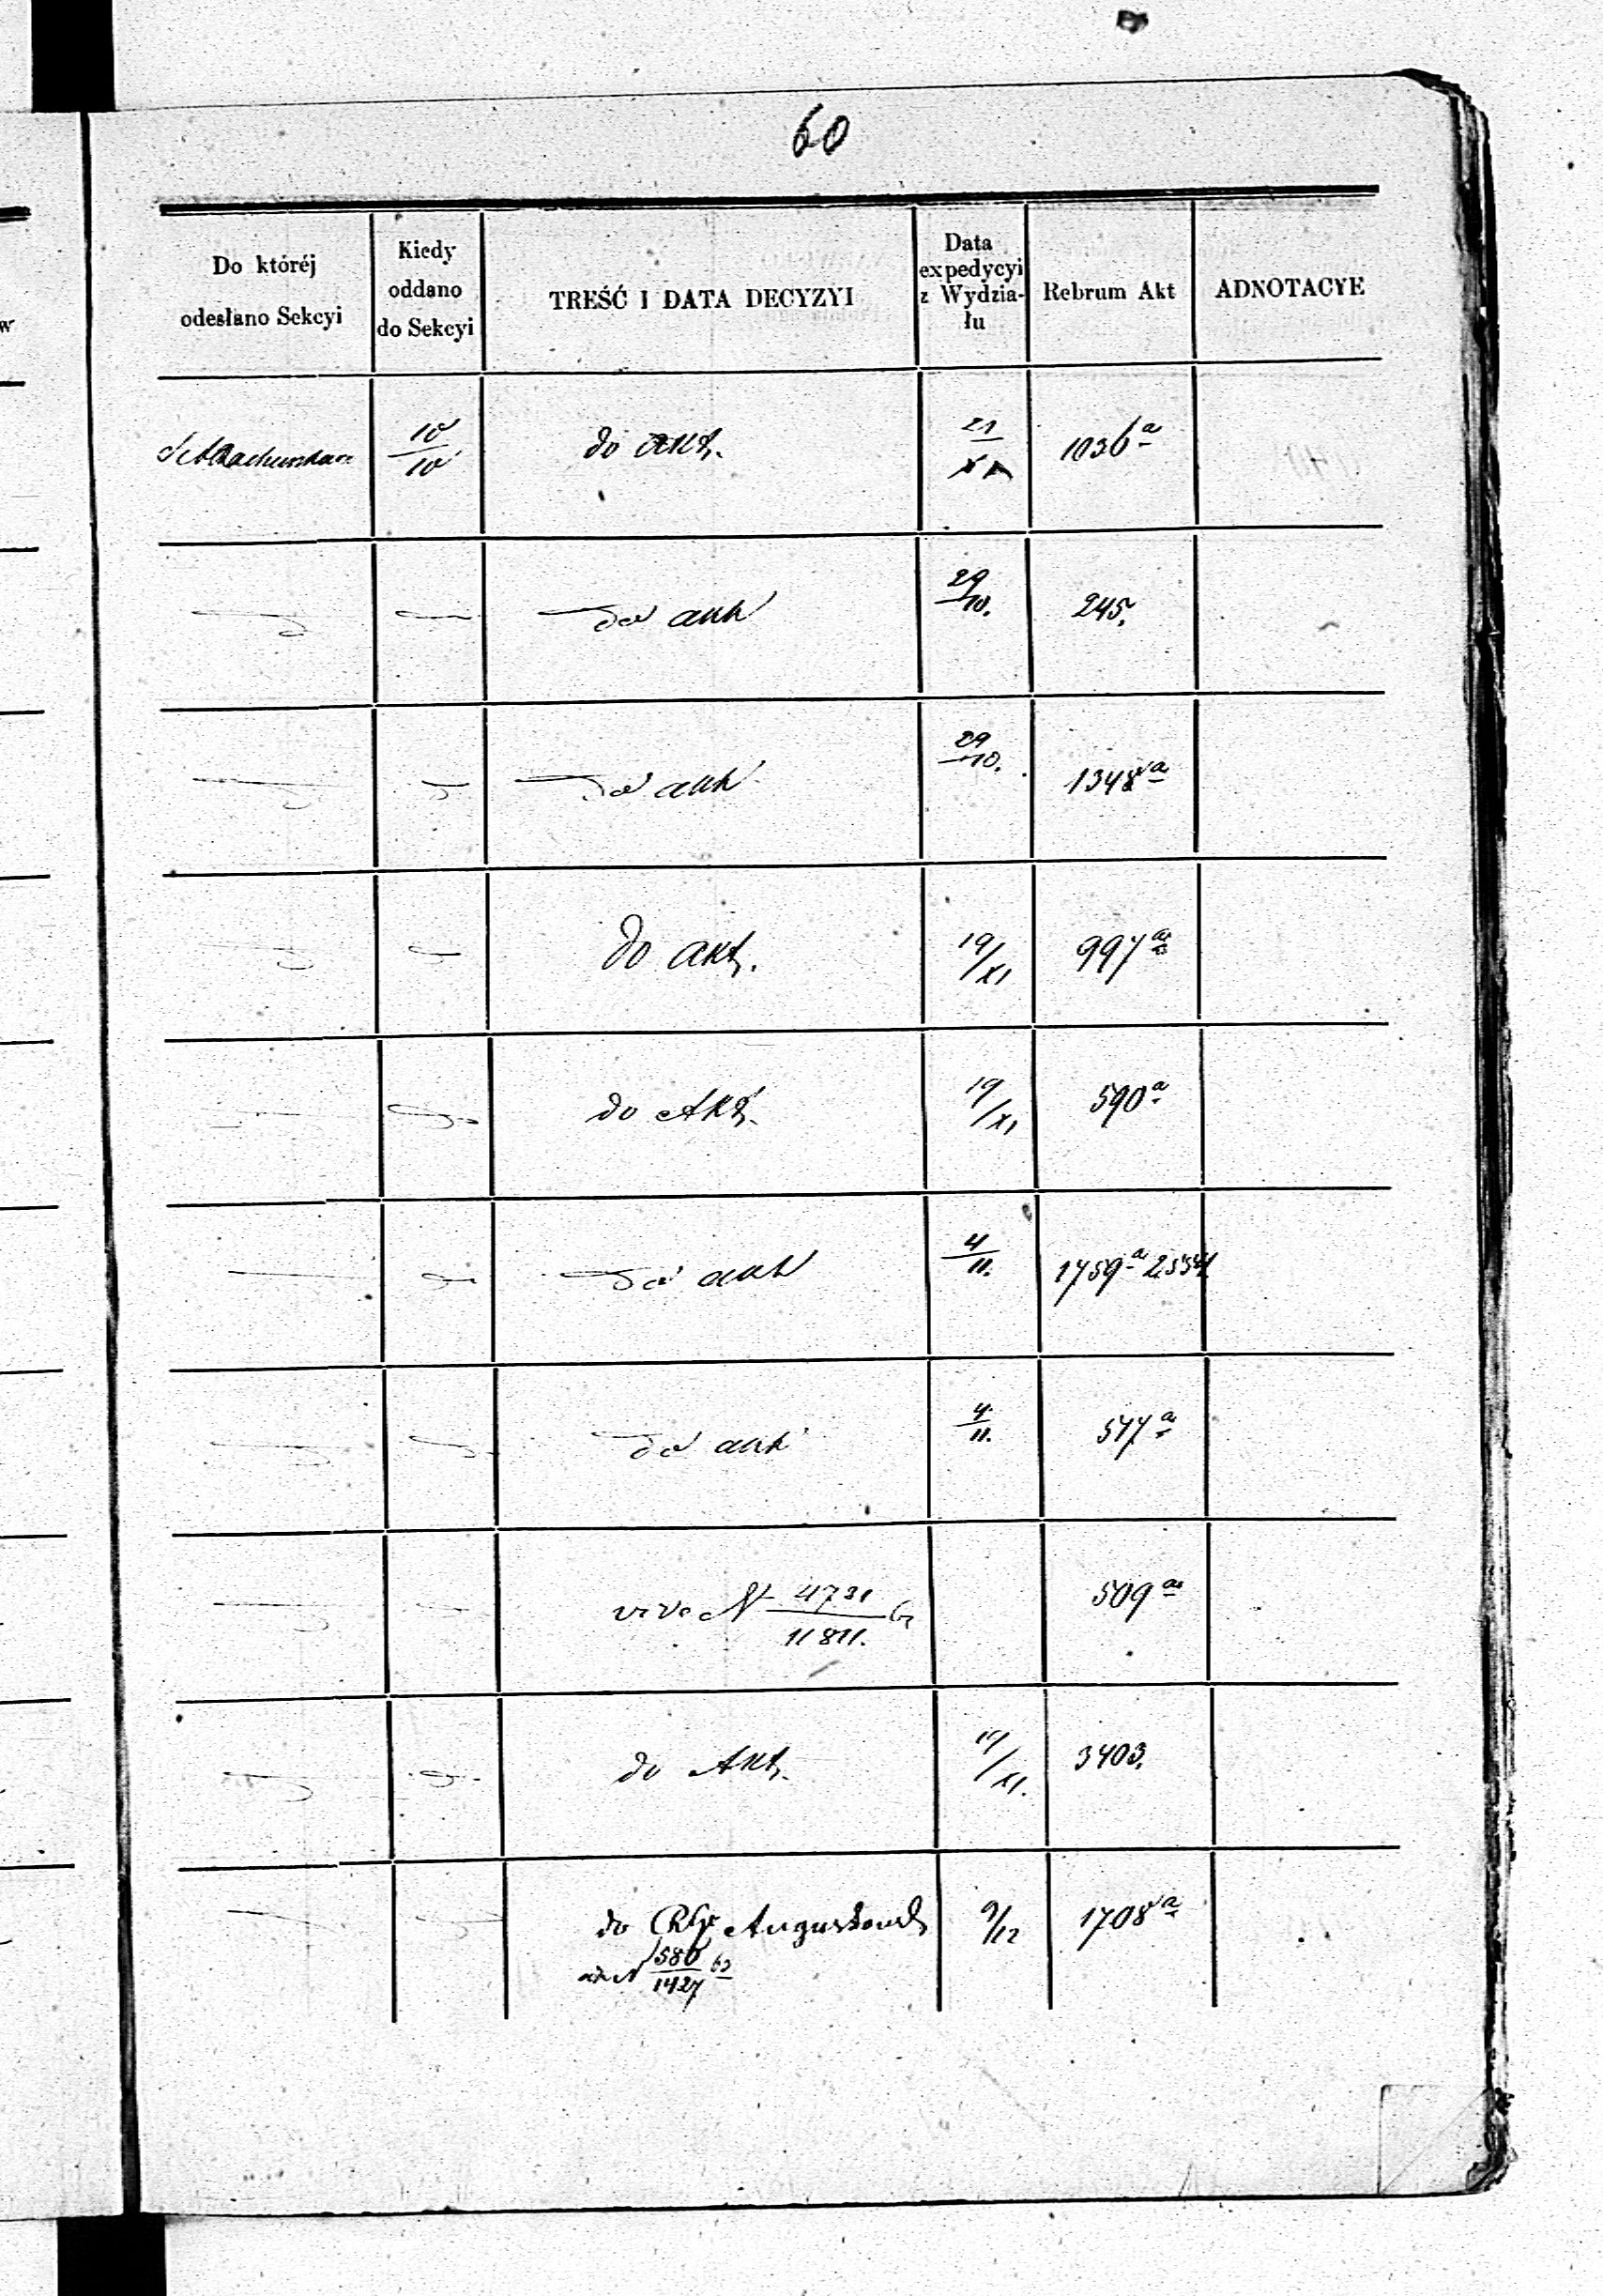 60
Do któréj odesłano Sekcyi | Kiedy oddano do Sekcyi | TREŚĆ I DATA DECYZYI | Data expedycyi z Wydziału | Rebrum Akt | ADNOTACYE
10/10 | do akt. | 21/XI | 1036 a
do akt | 29/10. | 245.
do akt | 29/10. | 1348 a
do akt. | 19/XI | 997 a
do Akt. | 19/XI | 590 a
do akt | 4/11. | 1759 a
do akt | 4/11. | 577 a
vide N 4731/11811. | 509 a
do Akt. | /XI. | 3403.
do Augustowsk | 9/12 | 1708 a
N 1586/1427 63